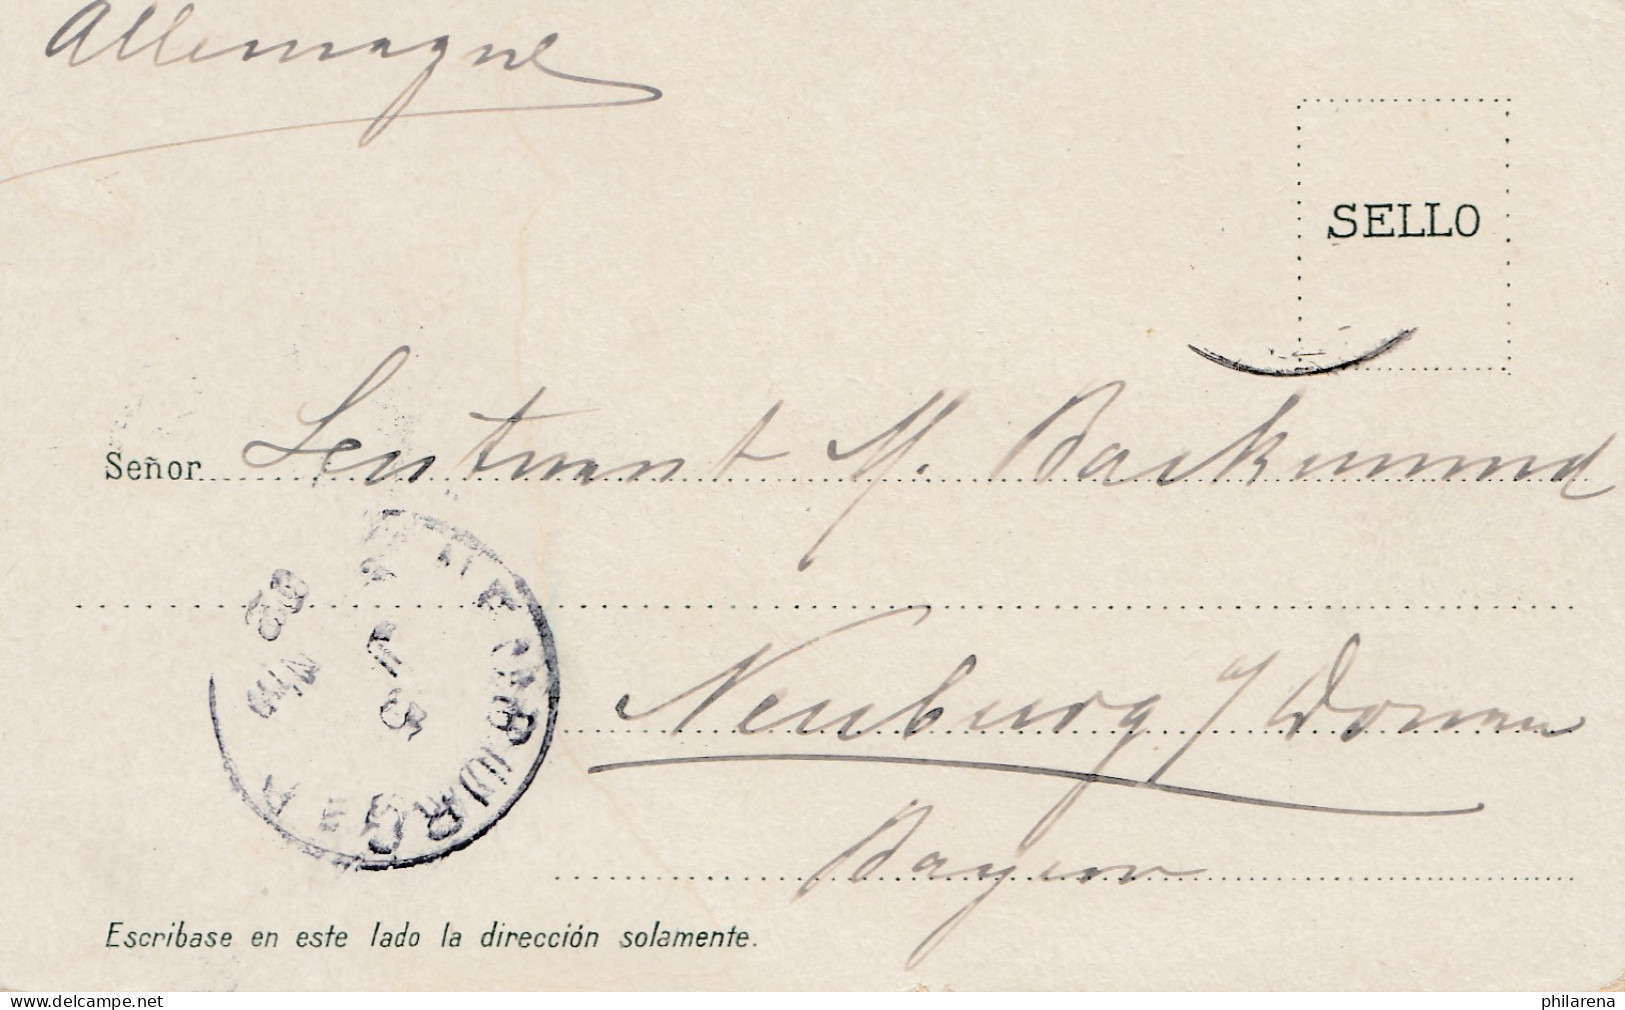 Allemagne
SELLO
Señor Leutnant M. Backmund
Neuburg a/Donau
Bayern
Escribase en este lado la dirección solamente.
delcampe.net
philarena